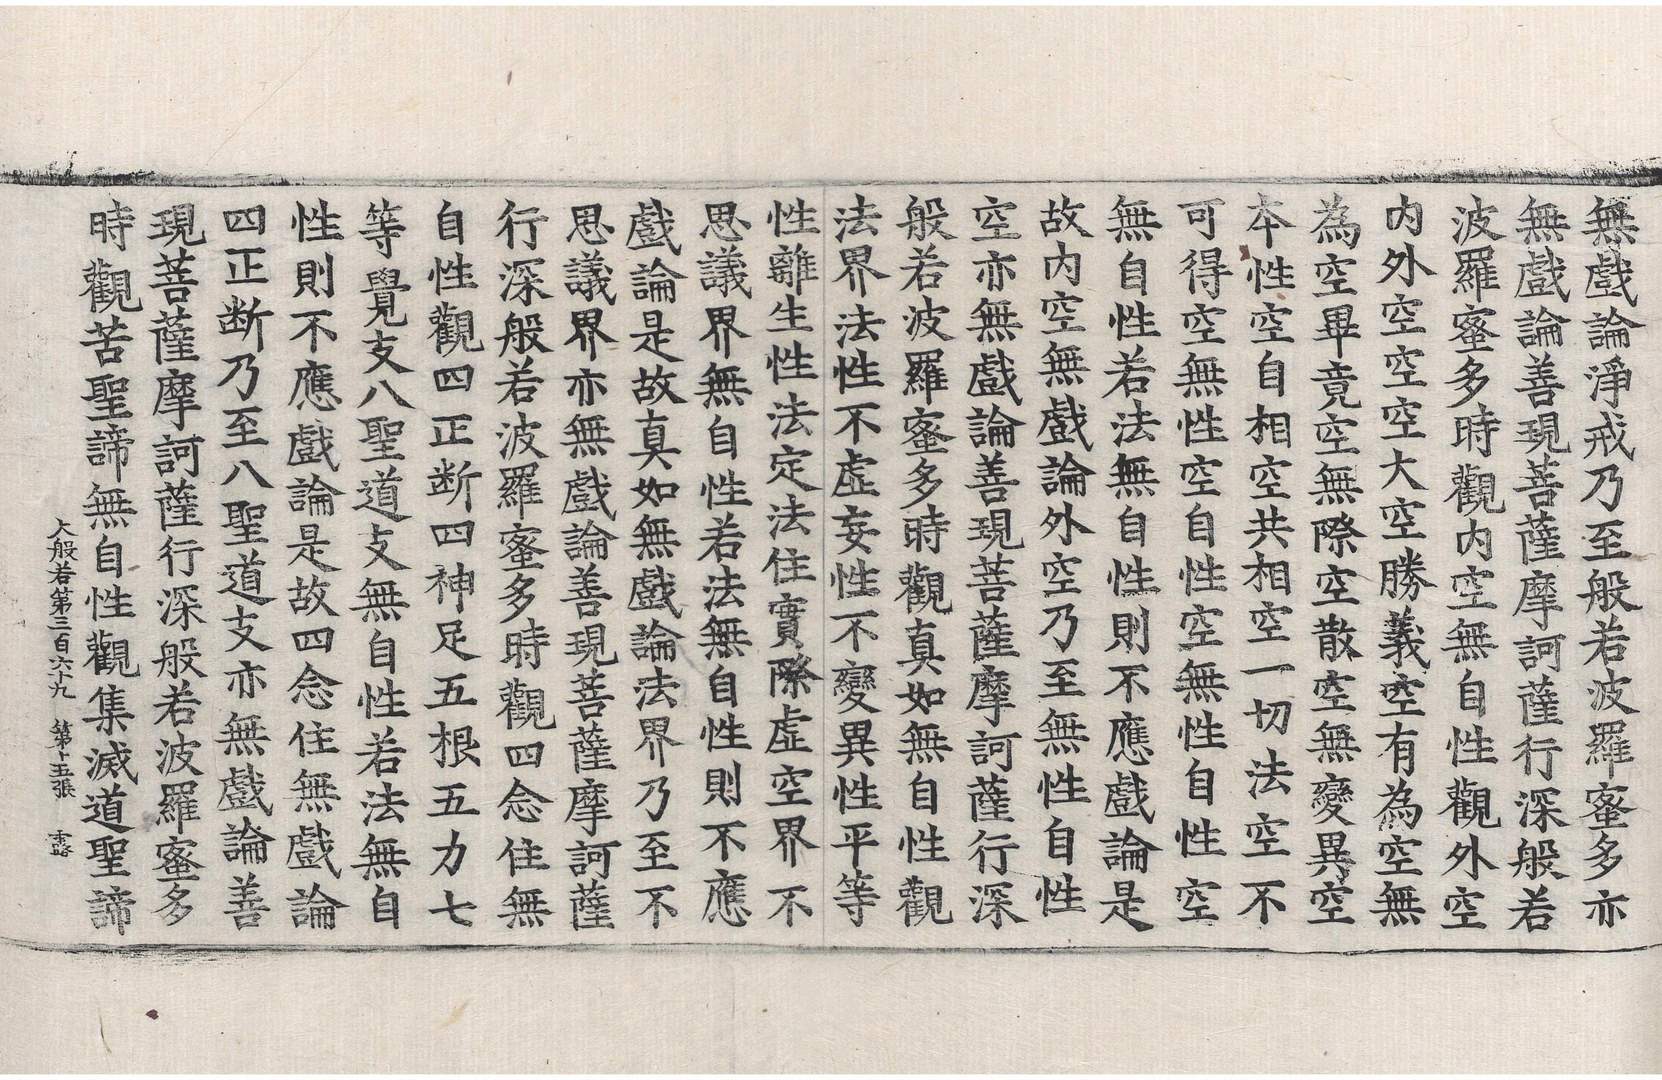 無戲論淨戒乃至般若波羅蜜多亦
無戲論善現菩薩摩訶薩行深般若
波羅蜜多時觀內空無自性觀外空
內外空空空大空勝義空有為空無
為空畢竟空無際空散空無變異空
本性空自相空共相空一切法空不
可得空無性空自性空無性自性空
無自性若法無自性則不應戲論是
故內空無戲論外空乃至無性自性
空亦無戲論善現菩薩摩訶薩行深
般若波羅蜜多時觀真如無自性觀
法界法性不虛妄性不變異性平等
性離生性法定法住實際虛空界不
思議界無自性若法無自性則不應
戲論是故真如無戲論法界乃至不
思議界亦無戲論善現菩薩摩訶薩
行深般若波羅蜜多時觀四念住無
自性觀四正斷四神足五根五力七
等覺支八聖道支無自性若法無自
性則不應戲論是故四念住無戲論
四正斷乃至八聖道支亦無戲論善
現菩薩摩訶薩行深般若波羅蜜多
時觀苦聖諦無自性觀集滅道聖諦
大般若第三百六十九 第十五張